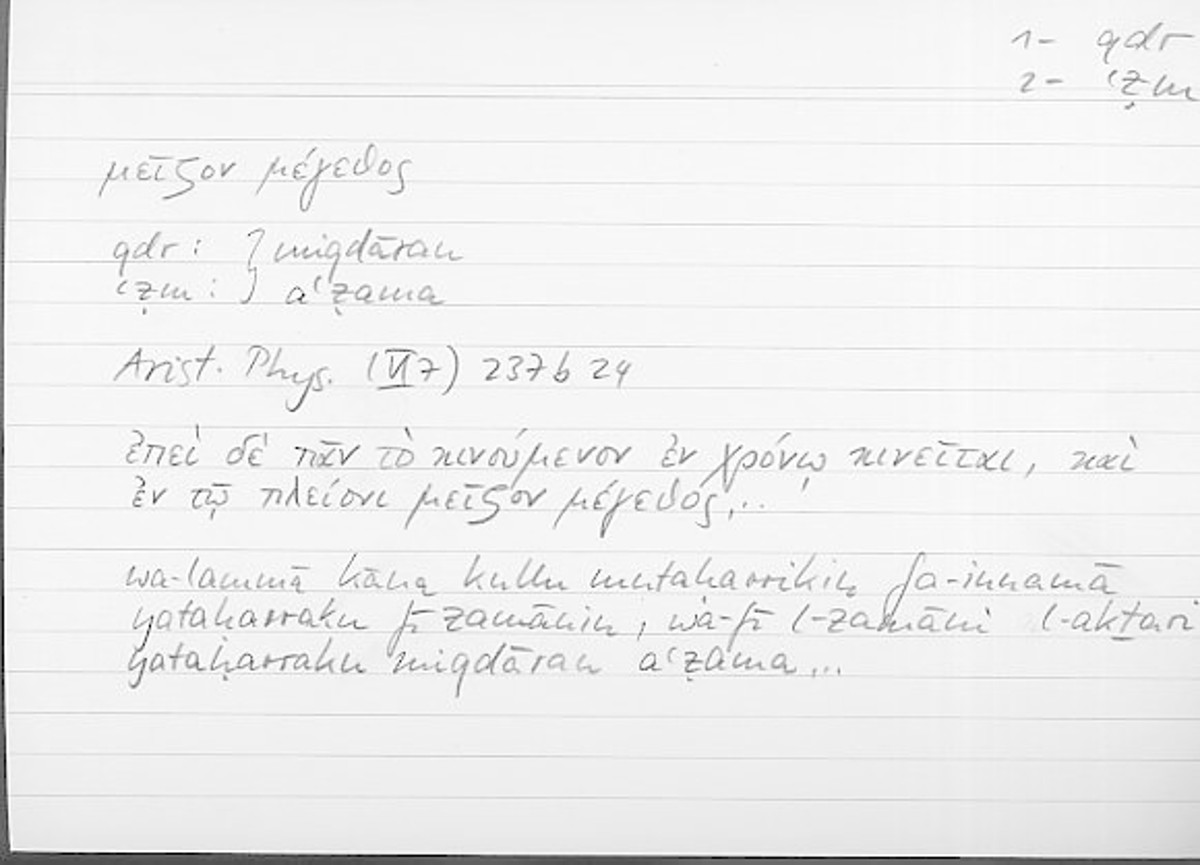 1- qdr
2- ʿẓm
μεῖζον μέγεθος
qdr : } miqdāran
ʿẓm : } aʿẓama
Arist. Phys. (VI 7) 237 b 24
ἐπεὶ δὲ πᾶν τὸ κινούμενον ἐν χρόνῳ κινεῖται, καὶ
ἐν τῷ πλείονι μεῖζον μέγεθος,..
wa-lammā kāna kullu mutaḥarrikin fa-innamā
yataḥarraku fī zamānin, wa-fī l-zamāni l-akṯari
yataḥarraku miqdāran aʿẓama...